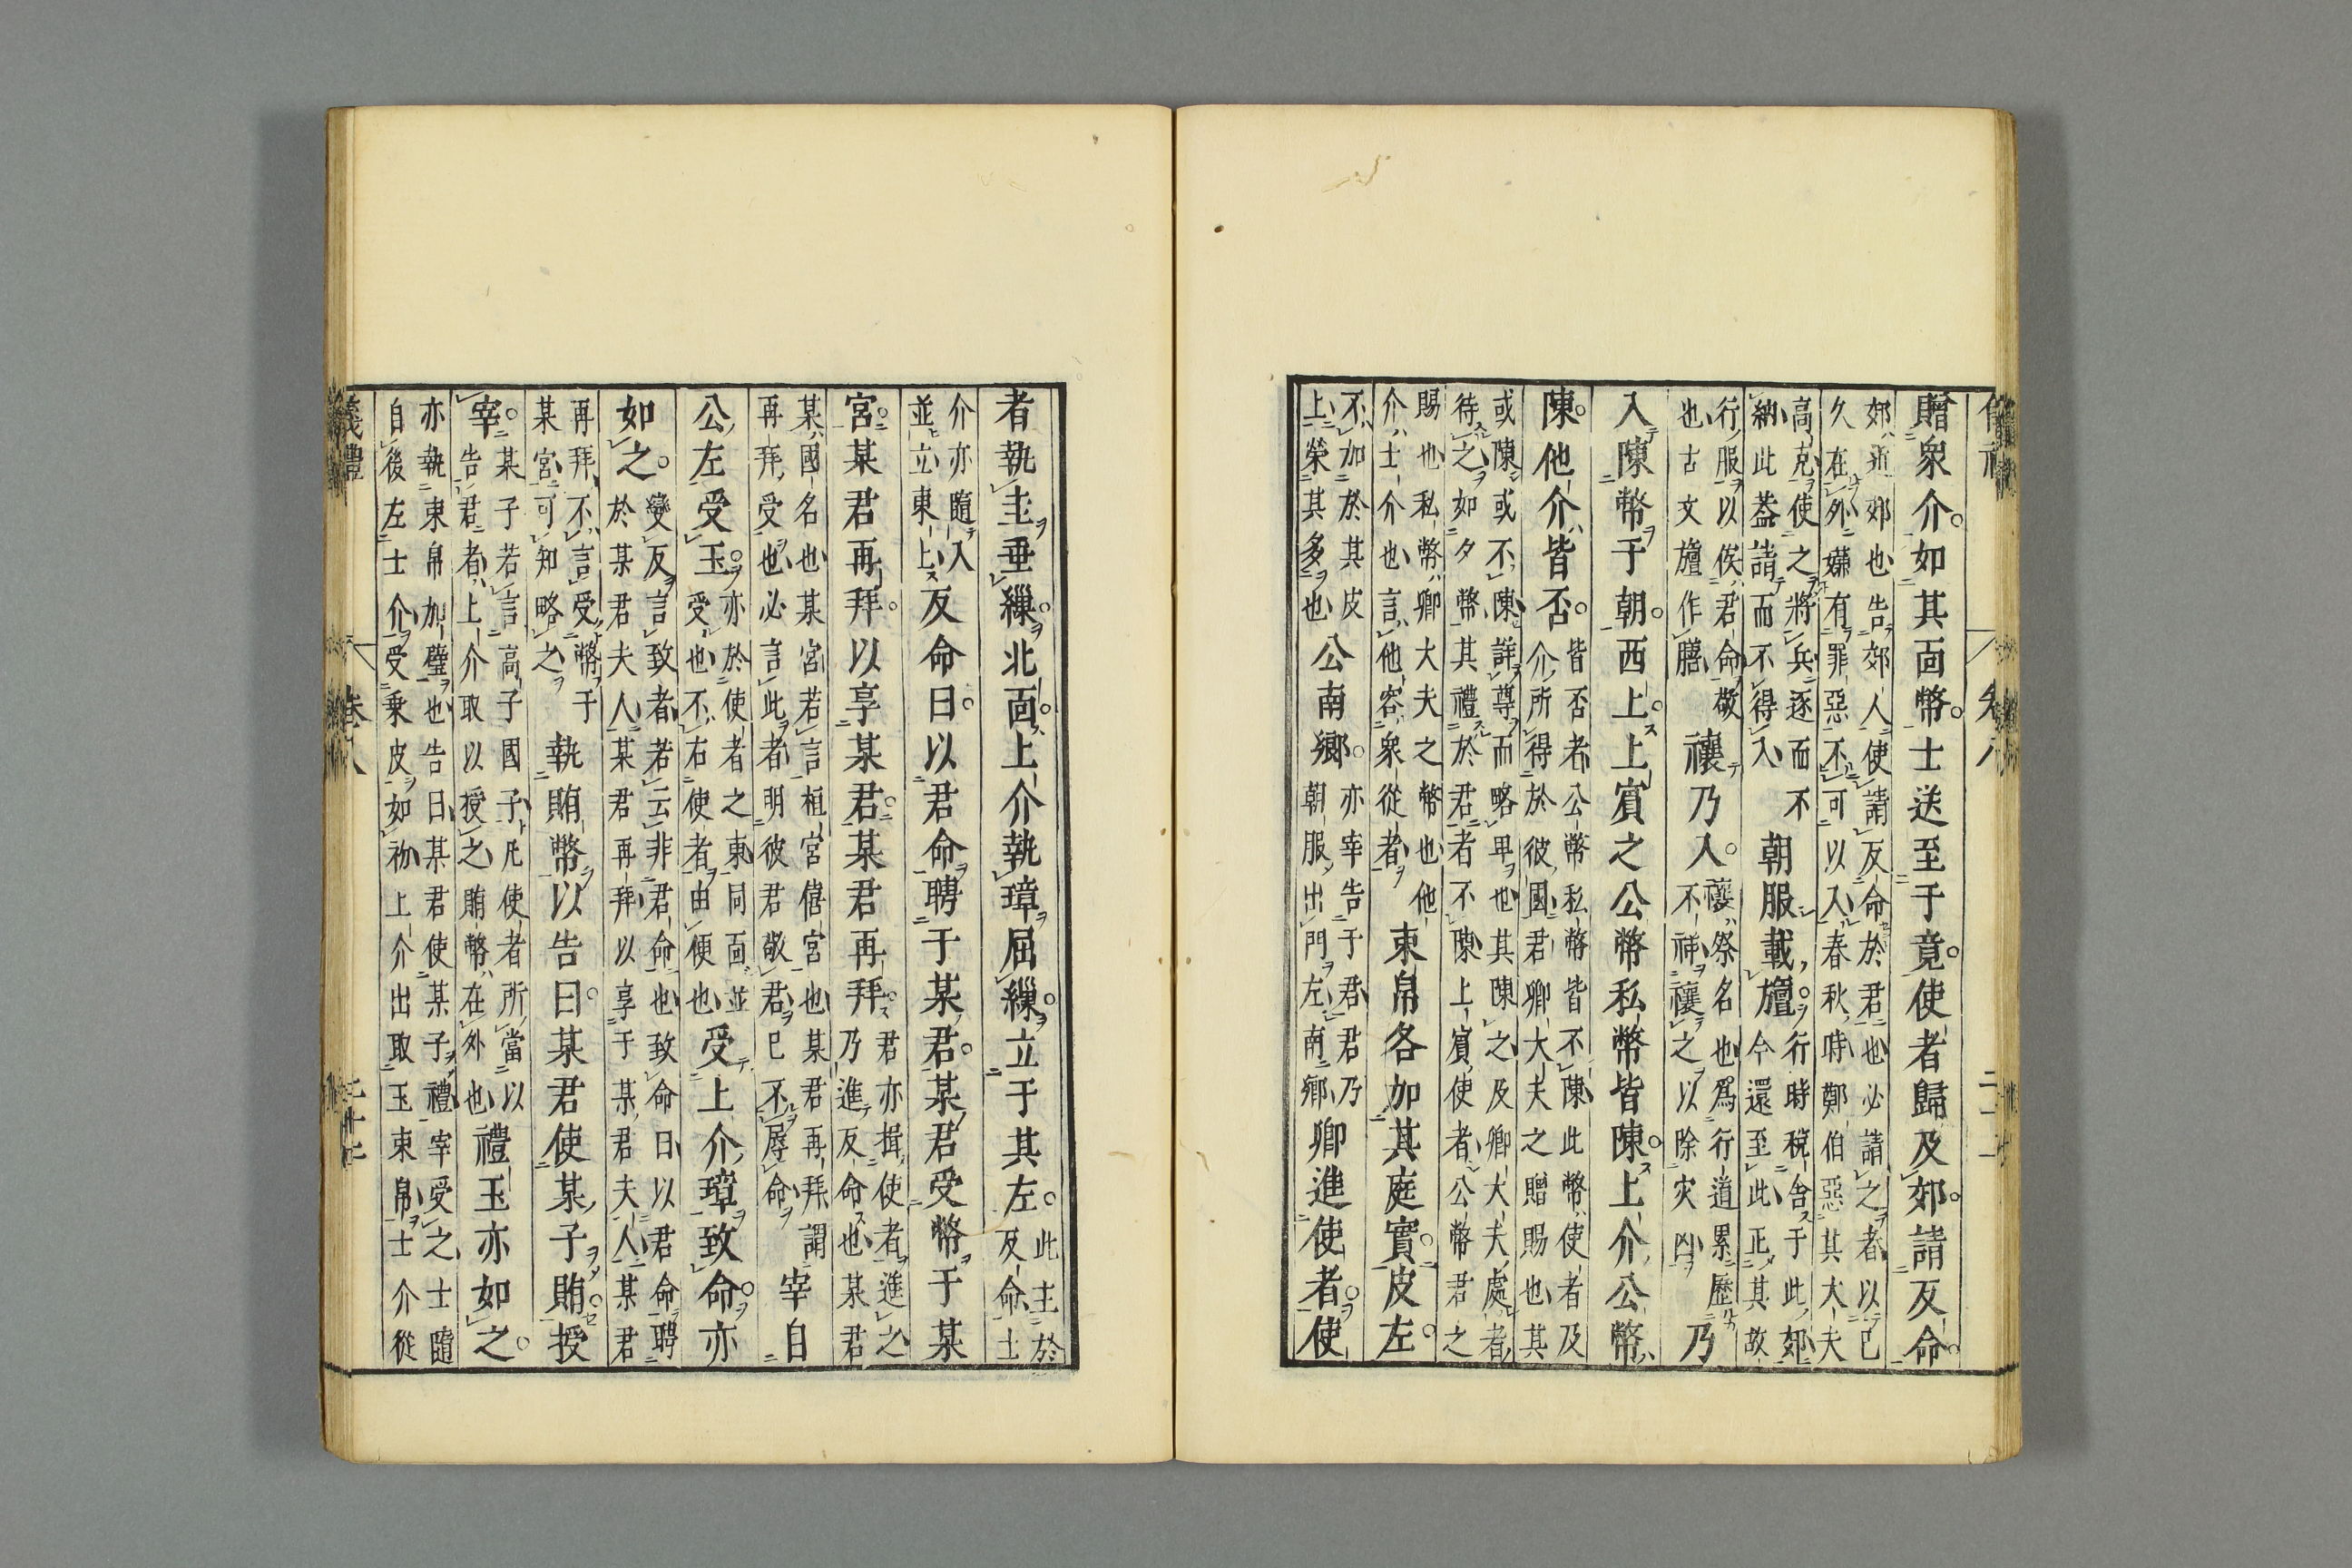 贈衆介。如其面幣。士送至于竟。使者歸及郊。請反命。
郊近郊也告郊人使請反命於君也必請之者以已
久在外嫌有罪惡不可以入春秋時鄭伯惡其大夫
高克使之將兵逐而不
納此蓋請而不得入
朝服載旜。
行時稅舍于此郊
今還至此正其故
行服以俟君命敬
也古文旜作膳
禳乃入。
禳祭名也爲行道累歷
不祥禳之以除灾凶
乃
入陳幣于朝。西上。上賔之公幣私幣皆陳。上介公幣
陳。他介皆否。
皆否者公幣私幣皆不陳此幣使者及
介所得於彼國君卿大夫之贈賜也其
或陳或不陳詳尊而略卑也其陳之及卿大夫處者
待之如夕幣其禮於君者不陳上賔使者公幣君之
賜也私幣卿大夫之幣也他
介士介也言他容衆從者
束帛各加其庭實。皮左。
不加於其皮
上榮其多也
公南鄉。
亦宰告于君君乃
朝服出門左南鄉
卿進使者。使
者執圭垂繅。北面。上介執璋屈繅。立于其左。
此主於
反命士
介亦隨入
並立東上
反命曰。以君命聘于某君。某君受幣于某
宮。某君再拜。以享某君。某君再拜。
君亦揖使者進之
乃進反命也某君
某國名也某宮若言桓宮僖宮也某君再拜謂
再拜受也必言此者明彼君敬君已不辱命
宰自
公左受玉。
亦於使者之東同面並
受也不右使者由便也
受上介璋致命。亦
如之。
變反言致者若云非君命也致命曰以君命聘
於某君夫人某君再拜以享于某君夫人某君
再拜不言受幣于
某宮可知略之
執賄幣以告曰。某君使某子賄。授
宰。
某子若言高子國子凡使者所當以
告君者上介取以授之賄幣在外也
禮玉亦如之。
亦執束帛加璧也告曰某君使某子禮宰受之士隨
自後左士介受乗皮如初上介出取玉束帛士介從
卷八
二十七